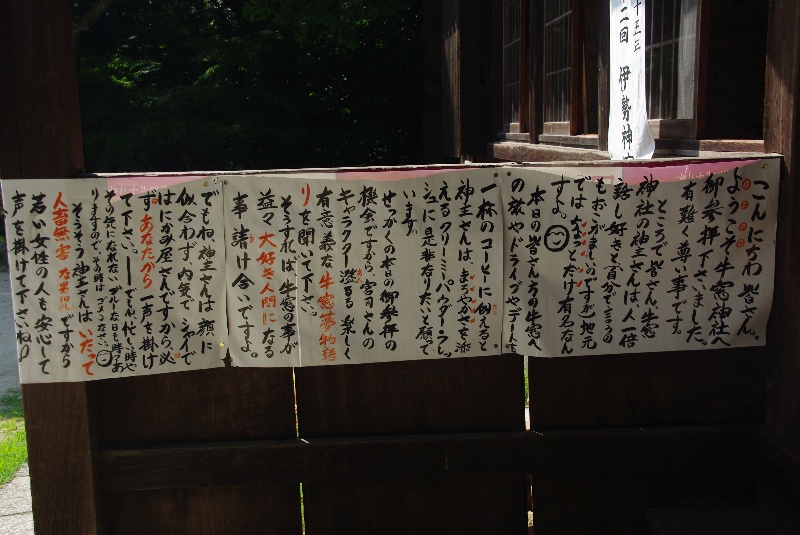 こんにちわ 皆さん。
ようこそ牛窓神社へ
御参拝下さいました。
有難く尊い事です。
ところで皆さん、牛窓
神社の神主さんは、人一倍
話し好きと(自分で言うの
もおこがましいのですが)地元
では
とだけ有名なん
ですよ。
本日の皆さん方の牛窓へ
の旅やドライブやデートを
一杯のコーヒーに例えると
神主さんは、まろやかさを添
えるクリーミーパウダー。ラ、
シュに是非なりたいと願って
います。
せっかくの本日の御参拝の
機会ですから、宮司さんの
キャラクター溢るる 楽しく
有意義な牛窓夢物語
りを聞いて下さい。
そうすれば、牛窓の事が
益々 大好き人間になる
事 請け合いですよ。
でもね、神主さんは 顔に
似合わず、内気でシャイで
はにかみ屋さんですから、必
ず あなたから 一声を掛け
て下さい。
でもね、忙しい時や
その気になれない ブルーな日も時々あ
りますので、その時は ゴメンなさい。
そうそう 神主さんは いたって
人畜無害な男児ですから
若い女性の人も安心して
声を掛けて下さいね。
十五
二回 伊勢神